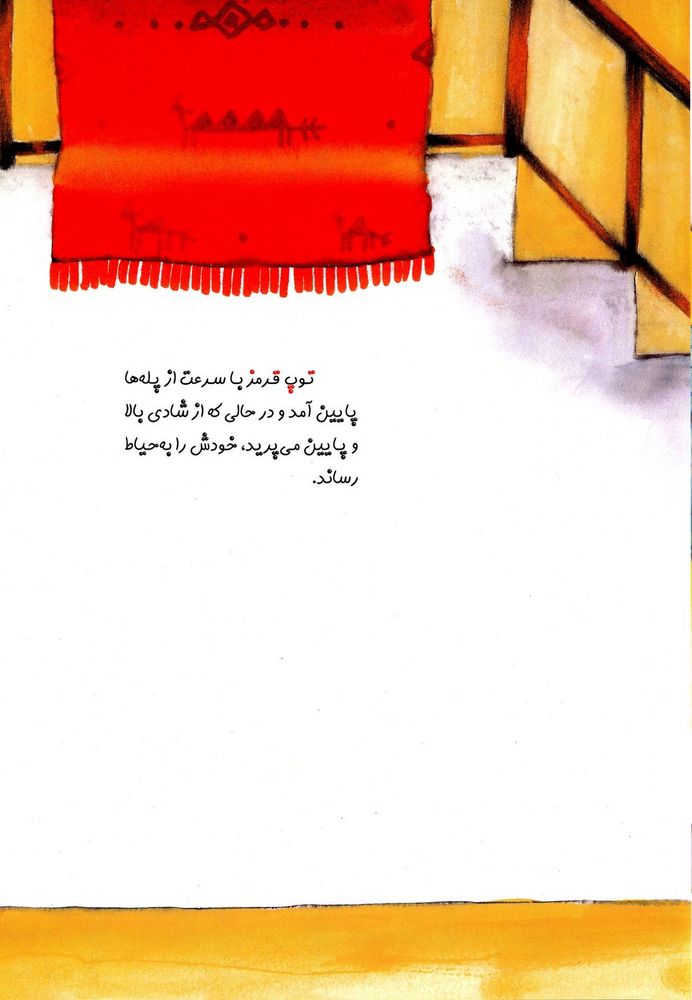 توپ قرمز با سرعت از پله‌ها
پایین آمد و در حالی که از شادی بالا
و پایین می‌پرید، خودش را به‌حیاط
رساند.